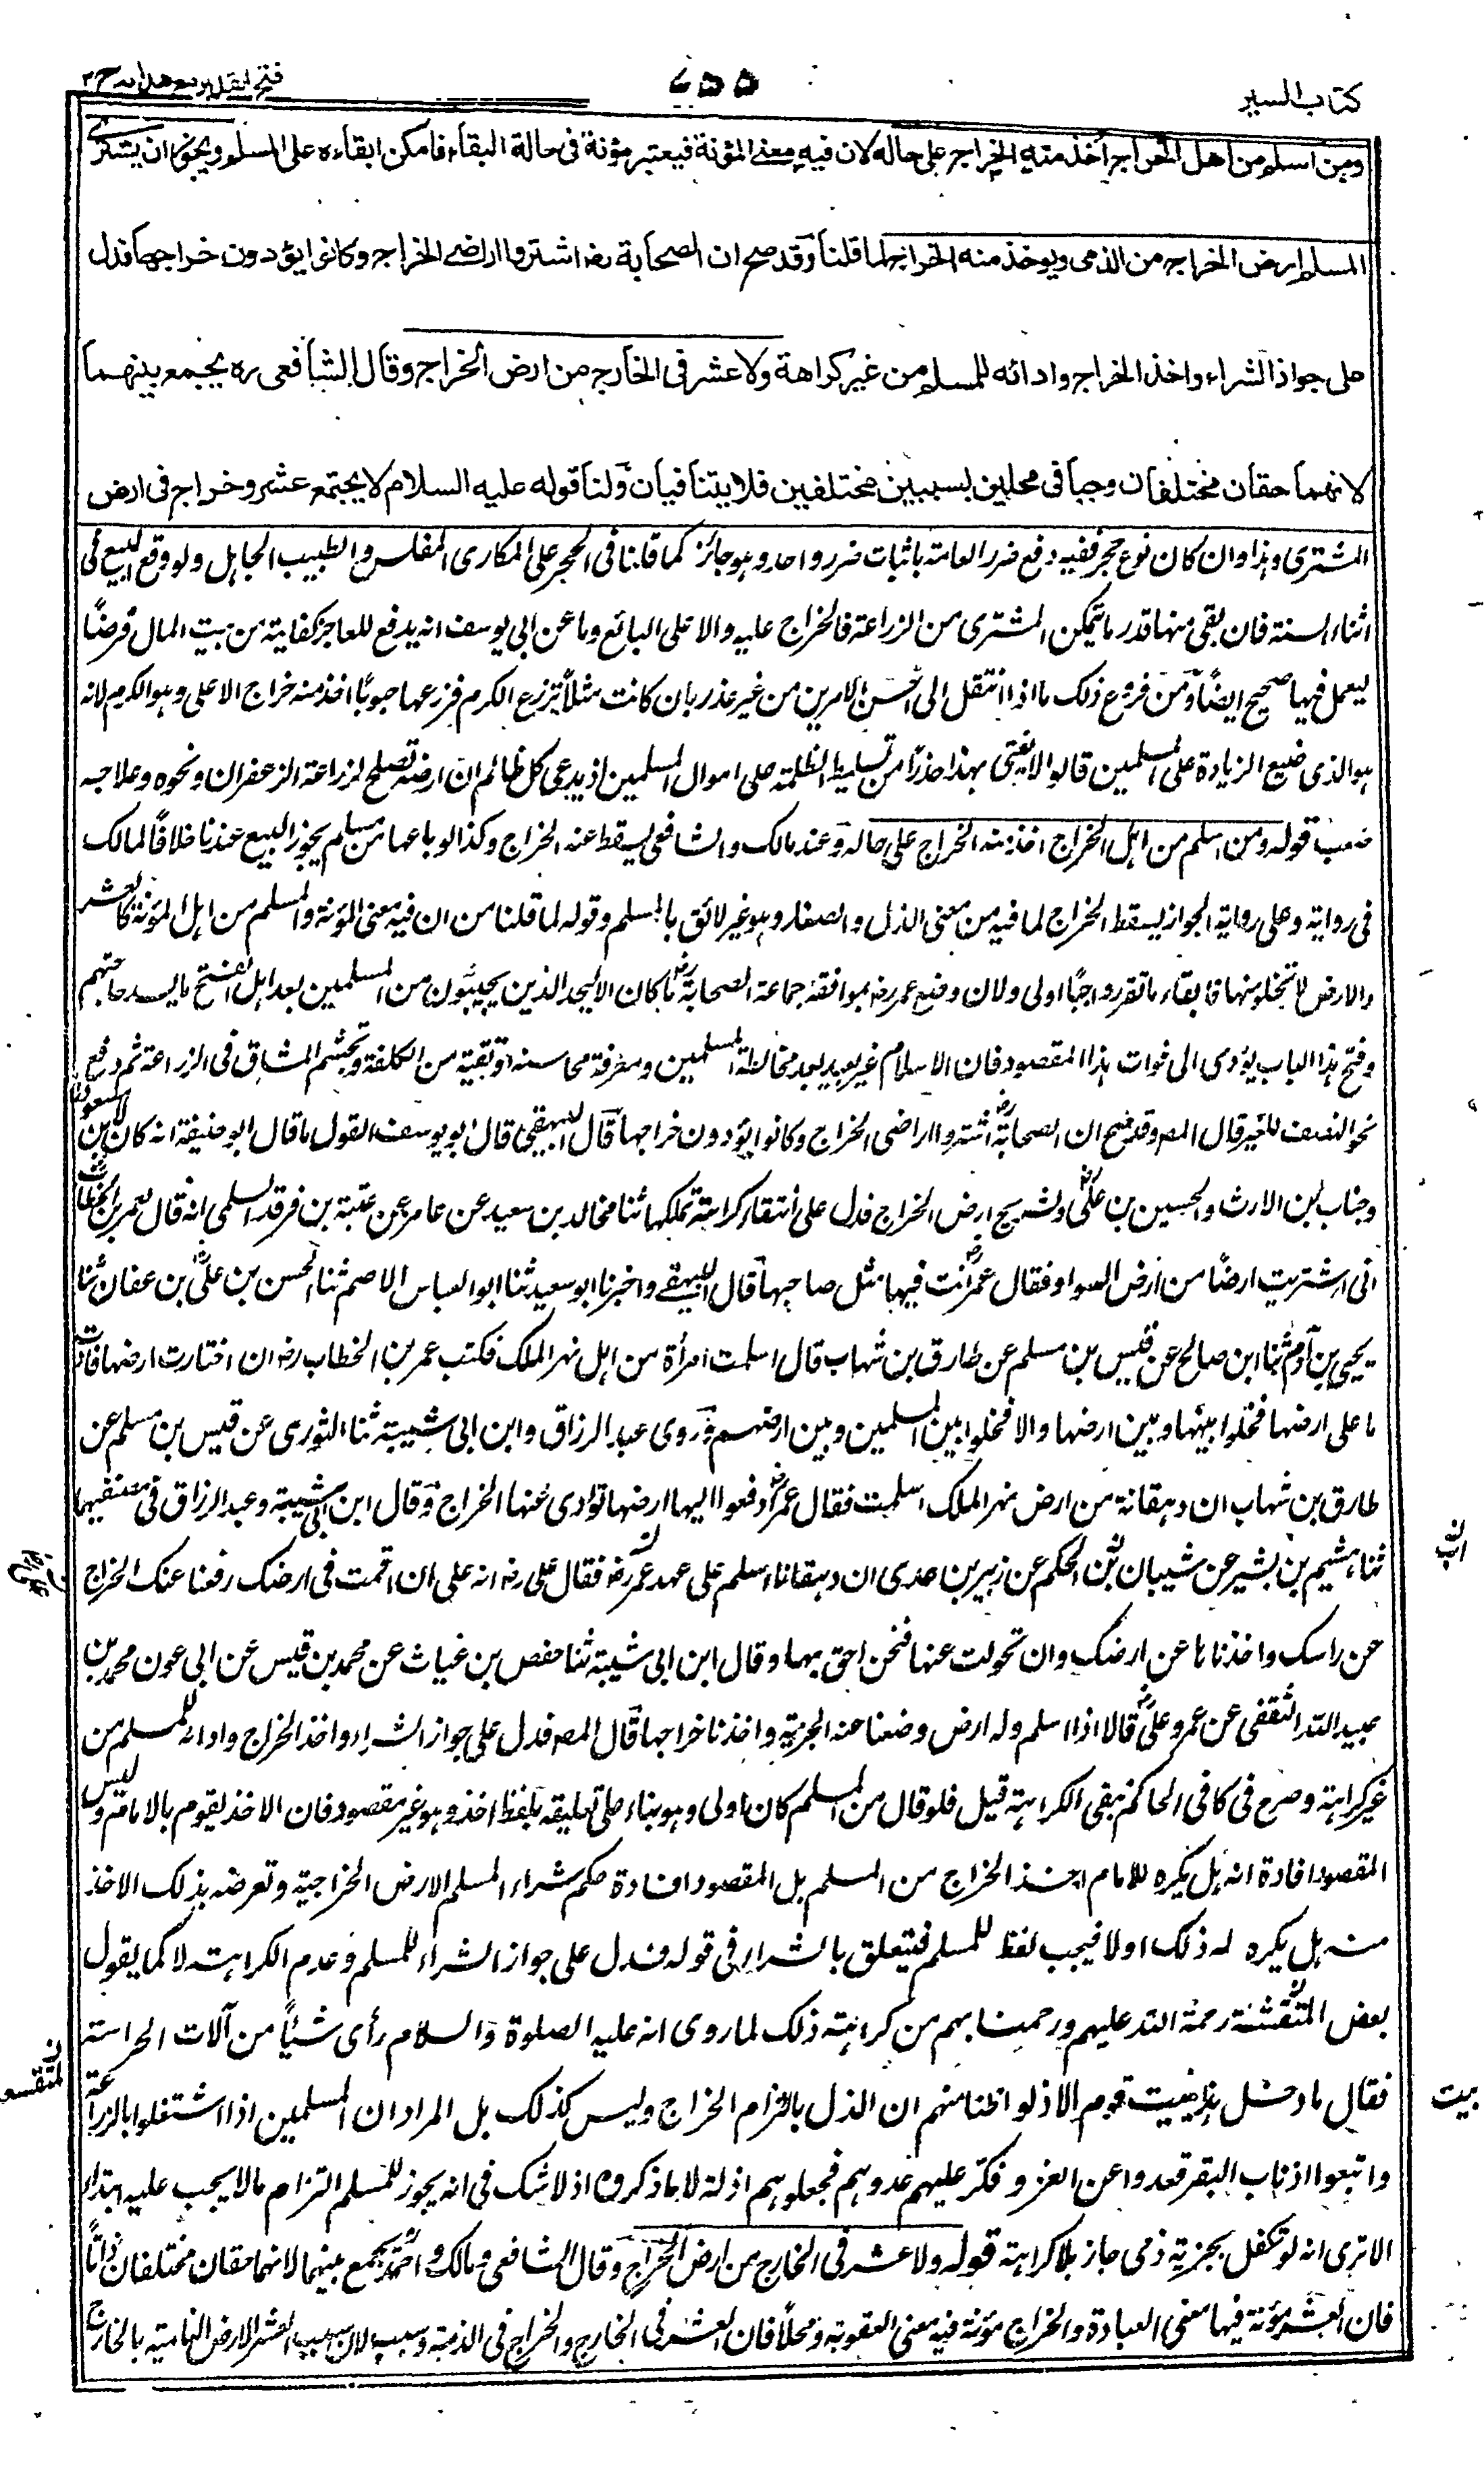 كتاب السير
٧٥٥
فتح القدير مع هدايه ج ٢
ومن اسلم من اهل الخراج اخذ منه الخراج على حاله لان فيه معنى المؤنة فيعتبر مؤنة فى حالة البقاء فامكن ابقاءه على المسلم ويجوز ان يشترى
المسلم ارض الخراج من الذمى ويوخذ منه الخراج لما قلنا وقد صح ان الصحابة رضـ اشتروا اراضى الخراج وكانوا يؤدون خراجها فدل
على جواز الشراء واخذ الخراج وادائه للمسلم من غير كراهة ولا عشر فى الخارج من ارض الخراج وقال الشافعى ره يجمع بينهما
لانهما حقان مختلفان وجبا فى محلين بسببين مختلفين فلا يتنافيان ولنا قوله عليه السلام لا يجتمع عشر وخراج فى ارض
المشترى وهذا وان كان نوع حجر ففيه دفع ضرر العامة باثبات ضرر واحد وهو جائز كما قلنا فى الحجر على المكارى المفلس والطبيب الجاهل ولو وقع البيع فى
اثناء السنة فان بقى منها قدر ما يتمكن المشترى من الزراعة فالخراج عليه والا على البائع وما عن ابى يوسف انه يدفع للعاجز كفايته من بيت المال قرضًا
ليعمل فيها صحيح ايضًا ومن فروع ذلك ما اذا انتقل الى اخس الامرين من غير عذر بان كانت مثلاً تزرع الكرم فزرعها حبوبًا اخذ منه خراج الاعلى وهو الكرم لانه
هو الذى ضيع الزيادة على المسلمين قالوا لا يفتى بهذا حذرًا من تسليط الظلمة على اموال المسلمين اذ يدعى كل ظالم ان ارضه تصلح لزراعة الزعفران ونحوه وعلاجه
صعب قوله ومن اسلم من اهل الخراج اخذ منه الخراج على حاله وعند مالك والشافعى يسقط عنه الخراج وكذا لو باعها من مسلم يجوز البيع عندنا خلافًا لمالك
فى رواية وعلى رواية الجواز يسقط الخراج لما فيه من معنى الذل والصغار وهو غير لائق بالمسلم وقوله لما قلنا من ان فيه معنى المؤنة والمسلم من اهل المؤنة كالعشر
والارض لا تخلو منها فابقاء ما تقرر واجبًا اولى ولان وضع عمر رضـ بموافقة جماعة الصحابة رضـ ما كان الا ليجد الذين يجيئون من المسلمين بعد اهل الفتح ما يسد حاجتهم
وفتح هذا الباب يؤدى الى فوات هذا المقصود فان الاسلام غير بعيد بعد مخالطة المسلمين ومعرفة محاسنه او تقية من الكلفة وتجشم المشاق فى الزراعة ثم دفع
نحو النصف للغير قال المصـ وقد صح ان الصحابة رضـ اشتروا اراضى الخراج وكانوا يؤدون خراجها قال البيهقى قال ابو يوسف القول ما قال ابو حنيفة انه كان لابن مسعود رضـ
وخباب بن الارث والحسين بن على رضـ ولشريح ارض الخراج فدل على انتفاء كراهة تملكها ثنا مخالد بن سعيد عن عامر عن عتبة بن فرقد السلمى انه قال لعمر بن الخطاب رضـ
انى اشتريت ارضًا من ارض السواد فقال عمر رضـ انت فيها مثل صاحبها قال البيهقى واخبرنا ابو سعيد ثنا ابو العباس الاصم ثنا الحسن بن على بن عفان ثنا
يحيى بن آدم ثنا ابن صالح عن قيس بن مسلم عن طارق بن شهاب قال اسلمت امرأة من اهل نهر الملك فكتب عمر بن الخطاب رضـ ان اختارت ارضها فادت
ما على ارضها فخلوا بينها وبين ارضها والا فخلوا بين المسلمين وبين ارضهم وروى عبد الرزاق وابن ابى شيبة ثنا الثورى عن قيس بن مسلم عن
طارق بن شهاب ان دهقانة من ارض نهر الملك اسلمت فقال عمر رضـ ادفعوا اليها ارضها تؤدى عنها الخراج وقال ابن ابى شيبة وعبد الرزاق فى مصنفيهما
ثنا هشيم بن بشير عن شيبان بن الحكم عن زبير بن عدى ان دهقانا اسلم على عهد عمر رضـ فقال على رضـ انه على ان اقمت فى ارضك رفعنا عنك الخراج
عن راسك واخذناها عن ارضك وان تحولت عنها فنحن احق بها وقال ابن ابى شيبة ثنا حفص بن غياث عن محمد بن قيس عن ابى عون محمد بن
عبيد الله الثقفى عن عمر وعلى رضـ قالا اذا اسلم وله ارض وضعنا عنه الجزية واخذنا خراجها قال المصـ فدل على جواز الشراء واخذ الخراج وادائه للمسلم من
غير كراهة وصرح فى كافى الحاكم بنفى الكراهة قيل فلو قال من المسلم كان اولى وهو بناء على تعليقه بلفظ اخذ وهو غير مقصود فان الاخذ يقوم بالامام وليس
المقصود افادة انه هل يكره للامام اخذ الخراج من المسلم بل المقصود افادة حكم شراء المسلم الارض الخراجية وتعرضه بذلك الاخذ
منه هل يكره له ذلك اولا فيجب لفظ للمسلم فيتعلق بالشراء فى قوله فدل على جواز الشراء للمسلم وعدم الكراهة لا كما يقول
بعض المتقشفة رحمة الله عليهم ورحمنا بهم من كراهة ذلك لما روى انه عليه الصلوة والسلام رأى شيئًا من آلات الحراسة
فقال ما دخل هذا بيت قوم الا ذلوا ظنا منهم ان الذل بالتزام الخراج وليس كذلك بل المراد ان المسلمين اذا اشتغلوا بالزراعة
واتبعوا اذناب البقر قعدوا عن الغزو فكر عليهم عدوهم فجعلوهم اذلة لا ما ذكروه اذ لا شك فى انه يجوز للمسلم التزام مالا يجب عليه ابتداء
الا ترى انه لو تكفل بجزية ذمى جاز بلا كراهة قوله ولا عشر فى الخارج من ارض الخراج وقال الشافعى ومالك واحمد يجمع بينهما لانهما حقان مختلفان ذاتًا
فان العشر مؤنة فيها معنى العبادة والخراج مؤنة فيه معنى العقوبة ومحلاً فان العشر فى الخارج والخراج فى الذمة وسببا لان سبب العشر الارض النامية بالخارج
بيت